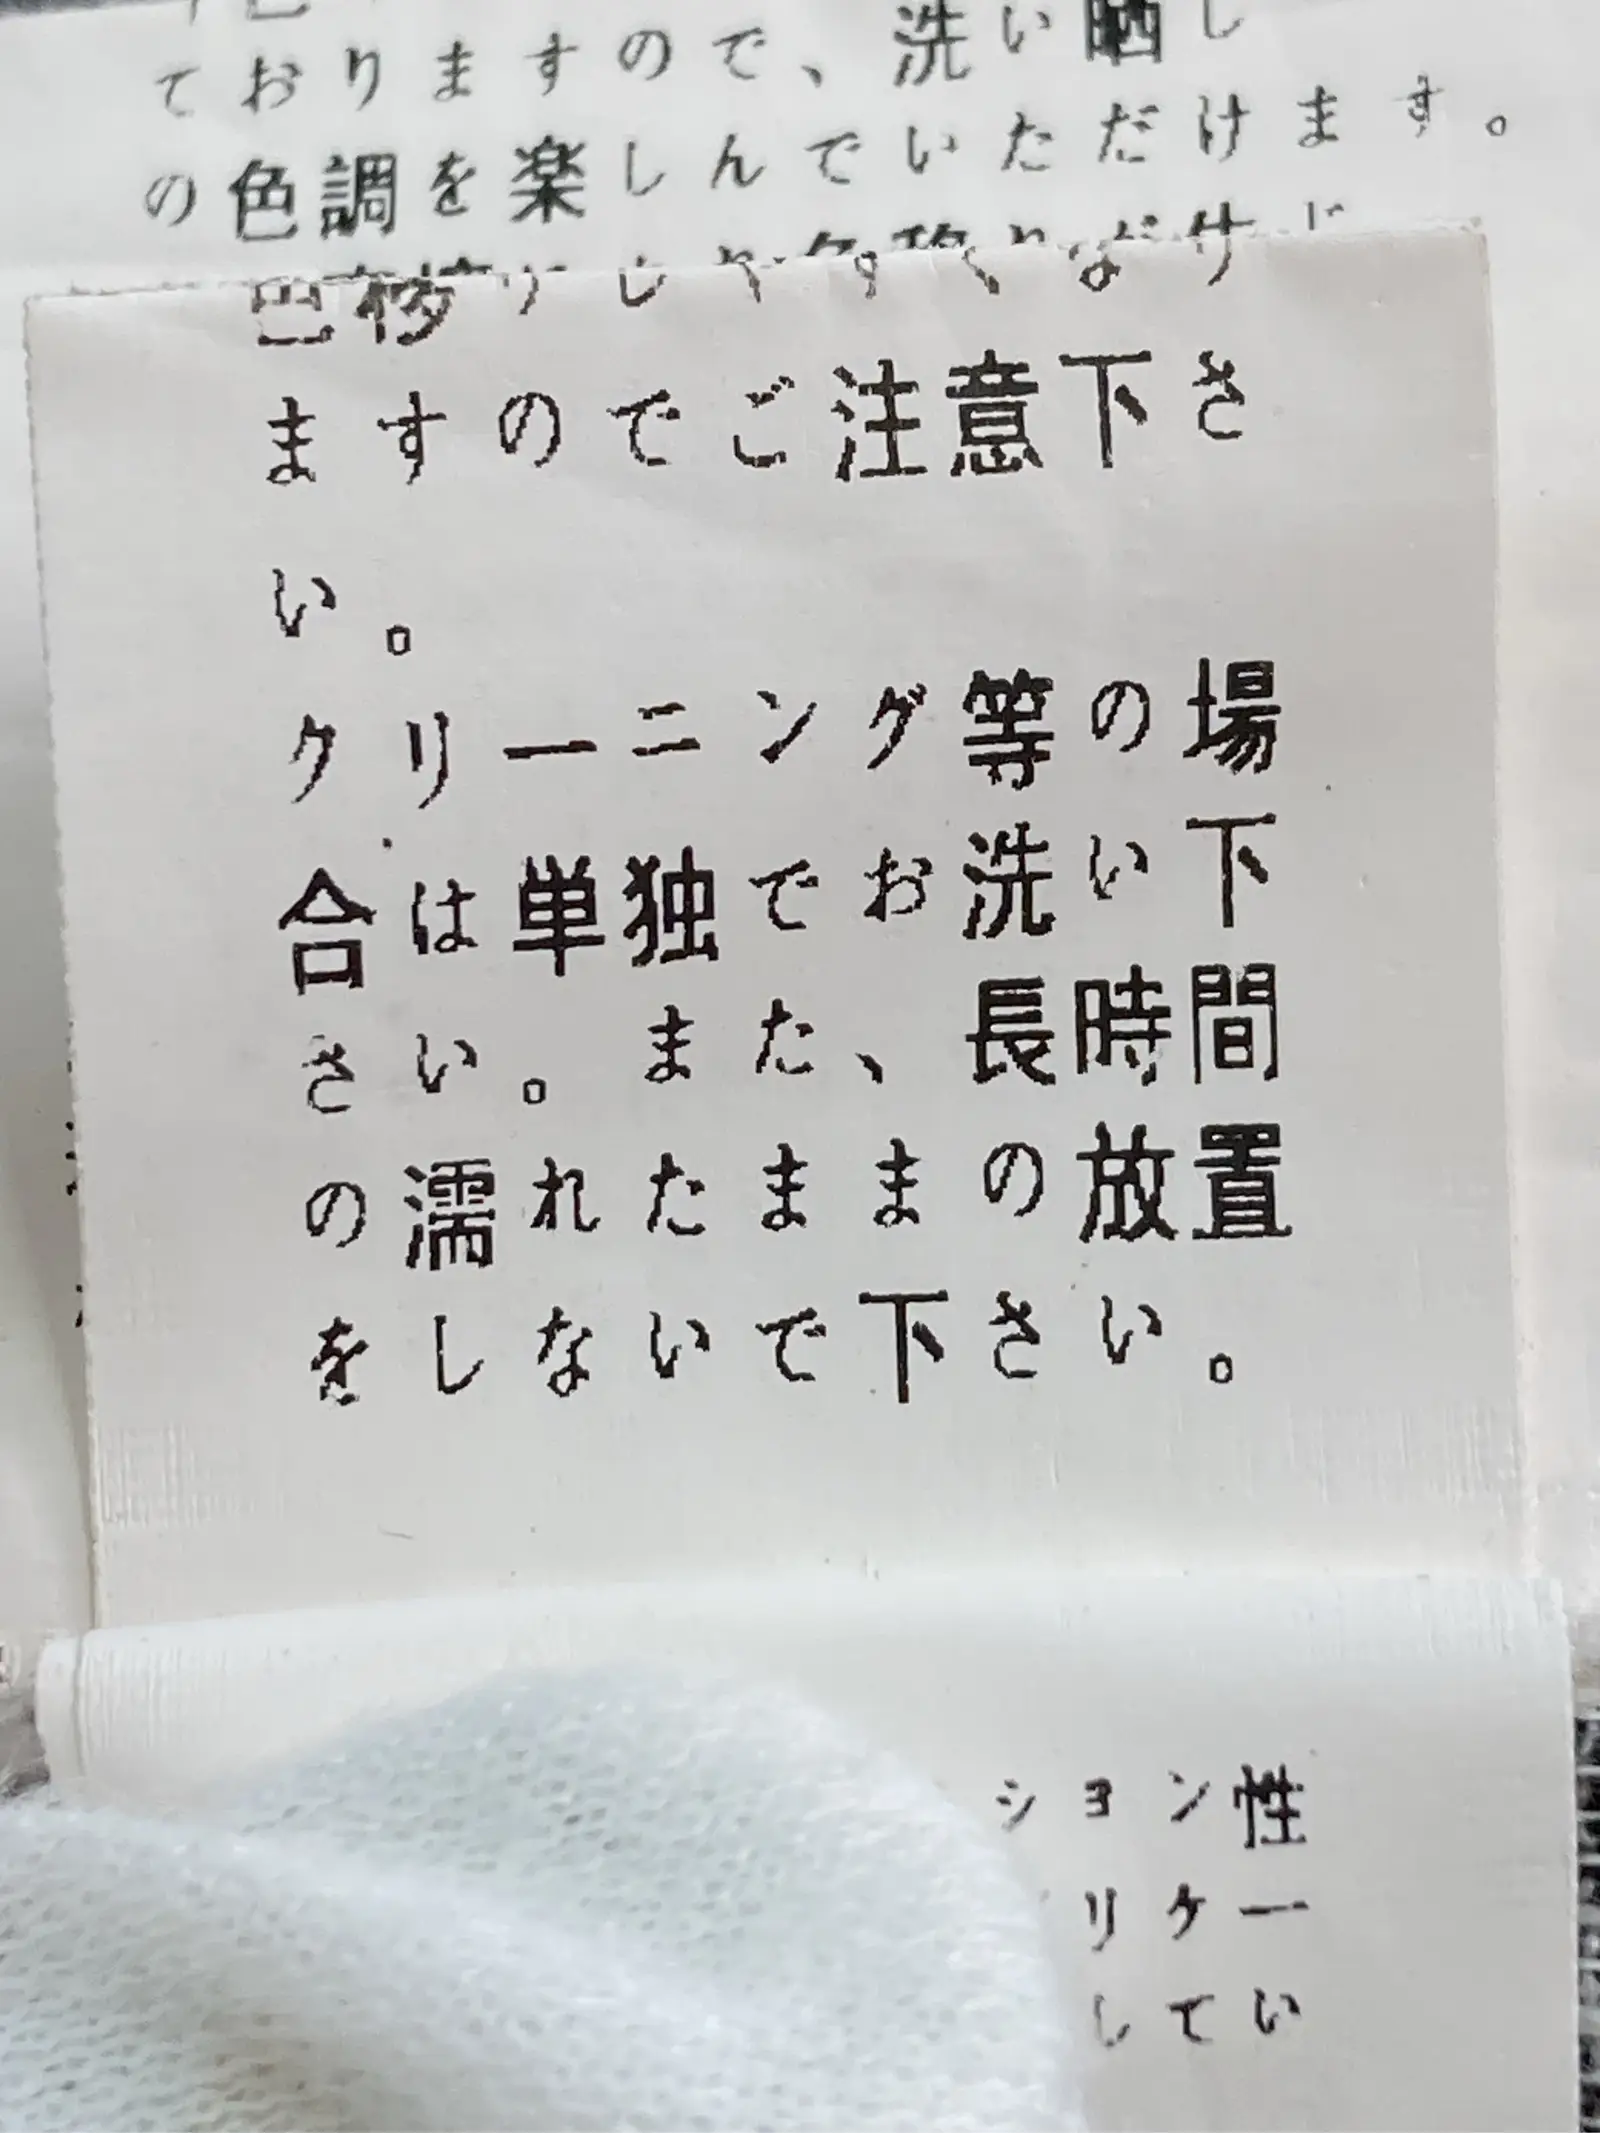 ておりますので、洗い晒し
の色調を楽しんでいただけます。
ますのでご注意下さ
い。
クリーニング等の場
合は単独でお洗い下
さい。また、長時間
の濡れたままの放置
をしないで下さい。
ション性
リケー
してい